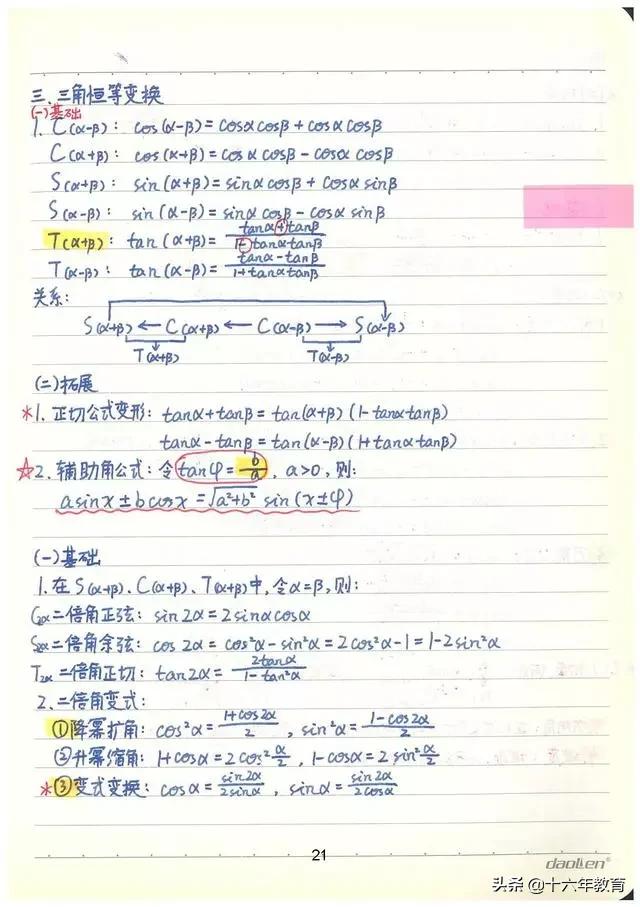 三、三角恒等变换
(一)基础
1. C(α-β): cos(α-β)=cosαcosβ+cosαcosβ
C(α+β): cos(α+β)=cosαcosβ-cosαcosβ
S(α+β): sin(α+β)=sinαcosβ+cosαsinβ
S(α-β): sin(α-β)=sinαcosβ-cosαsinβ
T(α+β): tan(α+β)=\frac{tanα+tanβ}{1-tanαtanβ}
T(α-β): tan(α-β)=\frac{tanα-tanβ}{1+tanαtanβ}
关系:
S(α+β) ← C(α+β) ← C(α-β) → S(α-β)
T(α+β) T(α-β)
(二)拓展
*1. 正切公式变形: tanα+tanβ=tan(α+β)(1-tanαtanβ)
tanα-tanβ=tan(α-β)(1+tanαtanβ)
☆2. 辅助角公式: 令tanφ=\frac{b}{a}, a>0, 则:
asinx±bcosx=√(a²+b²) sin(x±φ)
(一)基础
1. 在S(α+β)、C(α+β)、T(α+β)中,令α=β,则:
C2α二倍角正弦: sin2α=2sinαcosα
S2α二倍角余弦: cos2α=cos²α-sin²α=2cos²α-1=1-2sin²α
T2α二倍角正切: tan2α=\frac{2tanα}{1-tan²α}
2. 二倍角变式:
①降幂扩角: cos²α=\frac{1+cos2α}{2}, sin²α=\frac{1-cos2α}{2}
②升幂缩角: 1+cosα=2cos²\frac{α}{2}, 1-cosα=2sin²\frac{α}{2}
*③变式变换: cosα=\frac{sin2α}{2sinα}, sinα=\frac{sin2α}{2cosα}
21
daolien®
头条@十六年教育